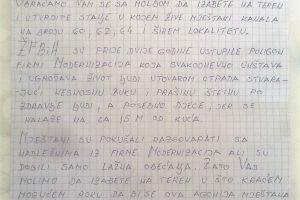 OBRAĆAMO VAM SE SA MOLBOM DA IZAĐETE NA TEREN
I UTVRDITE STANJE U KOJEM ŽIVE MJEŠTANI KANALA
NA BROJU 60, 62, 64 I ŠIREM LOKALITETU.
SU PRIJE DVIJE GODINE USTUPILE POLIGON
FIRMI MODERNIZACIJA KOJA SVAKODNEVNO UNIŠTAVA
I UGROŽAVA ŽIVOT LJUDI UTOVAROM OTPADA STVARA-
JUĆI NESNOSNU BUKU I PRAŠINU ŠTETNU PO
ZDRAVLJE LJUDI, A POSEBNO DJECE, JER SE
NALAZE NA CCA 15 M OD KUĆA.
MJEŠTANI SU POKUŠALI RAZGOVARATI SA
NADLEŽNIMA IZ FIRME MODERNIZACIJA ALI SU
DOBILI SAMO LAŽNA OBEĆANJA. ZATO VAS
MOLIMO DA IZAĐETE NA TEREN U ŠTO KRAĆEM
MOGUĆEM ROKU DA BI SE OVA AGONIJA MJEŠTANA